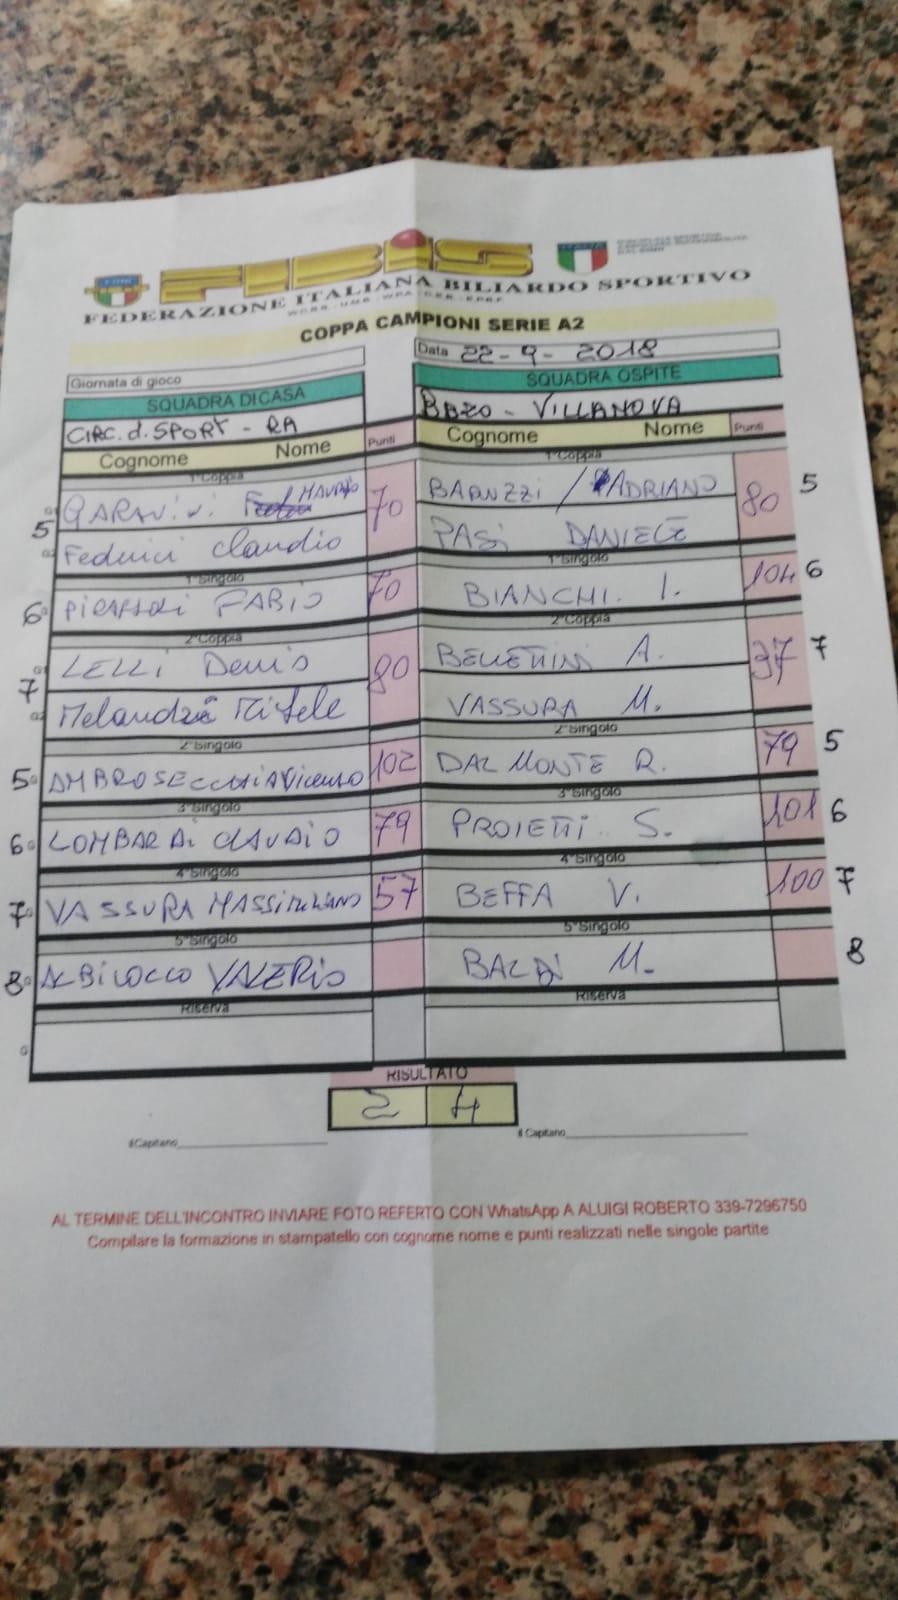 FIBiS
FEDERAZIONE ITALIANA BILIARDO SPORTIVO
COPPA CAMPIONI SERIE A2
Giornata di gioco Data 22-9-2018
SQUADRA DI CASA SQUADRA OSPITE
CIRC. d. SPORT - RA VILLANOVA
Cognome Nome Punti Cognome Nome Punti
1°Coppia 1°Coppia
5 GARAVINI MAURO 70 BARUZZI / ADRIANO 80 5
Federici Claudio PASI DANIELE
1°Singolo 1°Singolo
6 FABIO 70 BIANCHI. I. 104 6
2°Coppia 2°Coppia
7 LELLI Denis 80 BELLETTINI A. 37 7
VASSURA M.
2°Singolo 2°Singolo
5 AMBROSECCHIA Vicenzo 102 DAL MONTE R. 79 5
3°Singolo 3°Singolo
6 LOMBARDI CLAUDIO 79 PROIETTI S. 101 6
4°Singolo 4°Singolo
7 VASSURA MASSIMILIANO 57 BEFFA V. 100 7
5°Singolo 5°Singolo
8 ALBILOCCO VALERIO BALDI M. 8
Riserva Riserva
RISULTATO
2 4
Il Capitano Il Capitano
AL TERMINE DELL'INCONTRO INVIARE FOTO REFERTO CON WhatsApp A ALUIGI ROBERTO 339-7296750
Compilare la formazione in stampatello con cognome nome e punti realizzati nelle singole partite